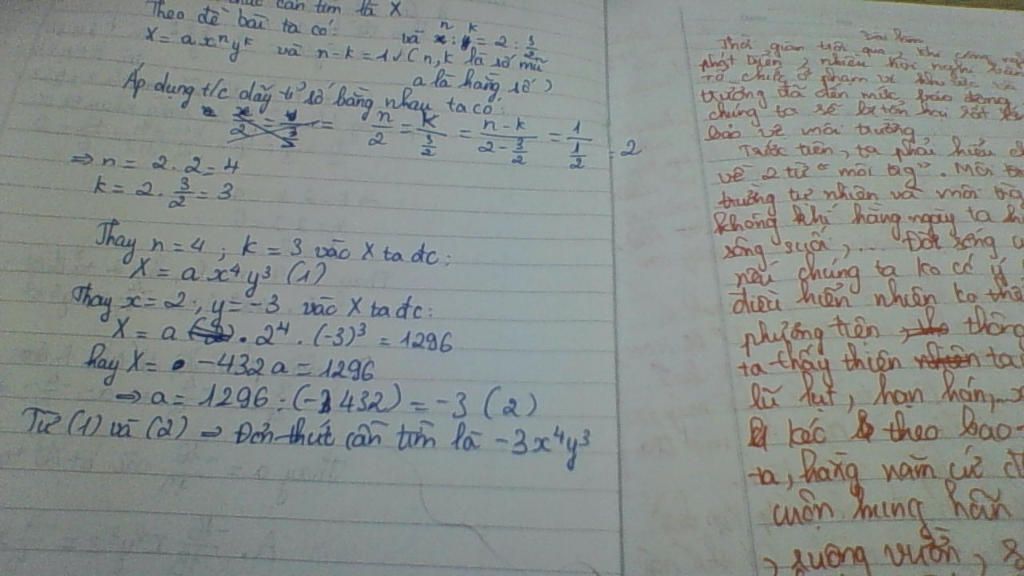 cần tìm là X.
Theo đề bài ta có:
X = a.xⁿyᵏ và n-k = 1 và n : k = 2 : 3/2 (n, k là số mũ
a là hằng số)
Áp dụng t/c dãy tỉ số bằng nhau ta có:
n/2 = k/(3/2) = (n-k)/(2-3/2) = 1/(1/2) = 2
⇒ n = 2.2 = 4
k = 2. 3/2 = 3
Thay n = 4 ; k = 3 vào X ta đc:
X = a.x⁴y³ (1)
Thay x = 2 ; y = -3 vào X ta đc:
X = a . 2⁴ . (-3)³ = 1296
hay X = -432a = 1296
⇒ a = 1296 : (-432) = -3 (2)
Từ (1) và (2) ⇒ Đơn thức cần tìm là -3x⁴y³
Bài làm
Thời gian trôi qua, khi công
phát triển, nhiều hội nghị
trường đã đến mức báo động
chúng ta sẽ bị tổn hại rất
bảo vệ môi trường.
Trước tiên, ta phải hiểu
về 2 từ "môi tr̀g". Môi
trường tự nhiên và môi
không khí hàng ngày ta
sông suối, ... Đời sống
nếu chúng ta ko có ý
điều hiển nhiên ko
phương tiện, thông
ta thấy thiên tai
lũ lụt, hạn hán, ...
kéo theo bao
ta, hàng năm cứ
cuộn hung hãn
, ruộng vườn,